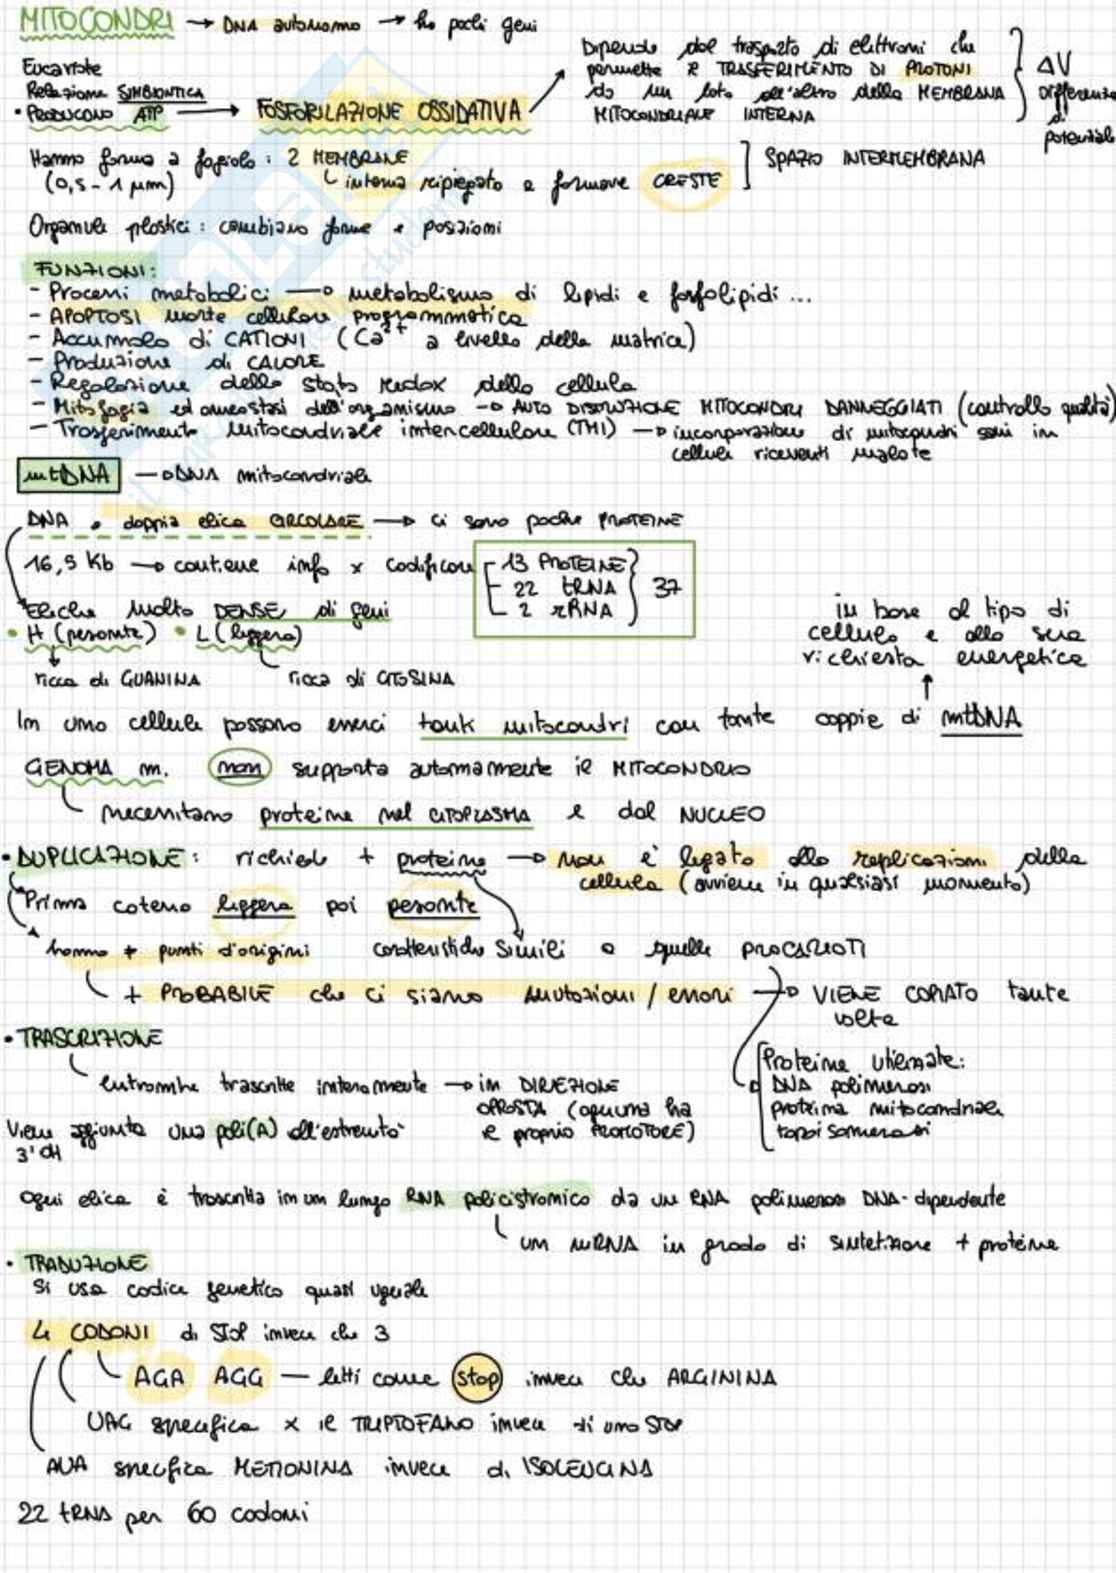 MITOCONDRI → DNA autonomo → ha pochi geni
Eucariote
Relazione SIMBIONTICA
• PRODUCONO ATP → FOSFORILAZIONE OSSIDATIVA
Dipende dal trasporto di elettroni che
permette il TRASFERIMENTO DI PROTONI
da un lato all'altro della MEMBRANA
MITOCONDRIALE INTERNA
ΔV
differenza
di
potenziale
Hanno forma a fagiolo : 2 MEMBRANE
(0,5 - 1 μm)
interna ripiegata a formare CRESTE
] SPAZIO INTERMEMBRANA
Organuli plastici : cambiano forme e posizioni
FUNZIONI:
- Processi metabolici → metabolismo di lipidi e fosfolipidi ...
- APOPTOSI morte cellulare programmatica
- Accumulo di CATIONI (Ca²⁺ a livello della matrice)
- Produzione di CALORE
- Regolazione dello stato redox della cellula
- Mitofagia ed omeostasi dell'organismo → AUTO DISTRUZIONE MITOCONDRI DANNEGGIATI (controllo qualità)
- Trasferimento mitocondriale intercellulare (TMI) → incorporazione di mitocondri sani in
cellule riceventi malate
mtDNA → DNA mitocondriale
DNA a doppia elica CIRCOLARE → ci sono poche PROTEINE
16,5 Kb → contiene info x codificare
13 PROTEINE
22 tRNA
2 rRNA
37
Eliche molto DENSE di geni
• H (pesante) • L (leggera)
ricca di GUANINA ricca di CITOSINA
in base al tipo di
cellula e alla sua
richiesta energetica
In una cellula possono esserci tanti mitocondri con tante coppie di mtDNA
GENOMA m. non supporta autonomamente il MITOCONDRIO
necessitano proteine nel CITOPLASMA e dal NUCLEO
• DUPLICAZIONE: richiede + proteine → non è legato alla replicazioni della
cellula (avviene in qualsiasi momento)
Prima catena leggera poi pesante
hanno + punti d'origini caratteristiche simili a quelle PROCARIOTI
+ PROBABILE che ci siano mutazioni / errori → VIENE COPIATO tante
volte
• TRASCRIZIONE
entrambe trascritte interamente → in DIREZIONE
OPPOSTA (ognuna ha
il proprio PROMOTORE)
Proteine utilizzate:
DNA polimerasi
proteina mitocondriale
topoisomerasi
Viene aggiunta una poli(A) all'estremità
3' OH
Ogni elica è trascritta in un lungo RNA policistronico da un RNA polimerasi DNA-dipendente
un mRNA in grado di sintetizzare + proteine
• TRADUZIONE
Si usa codice genetico quasi uguale
4 CODONI di STOP invece che 3
AGA AGG — letti come stop invece che ARGININA
UAG specifica x il TRIPTOFANO invece di uno STOP
AUA specifica METIONINA invece di ISOLEUCINA
22 tRNA per 60 codoni